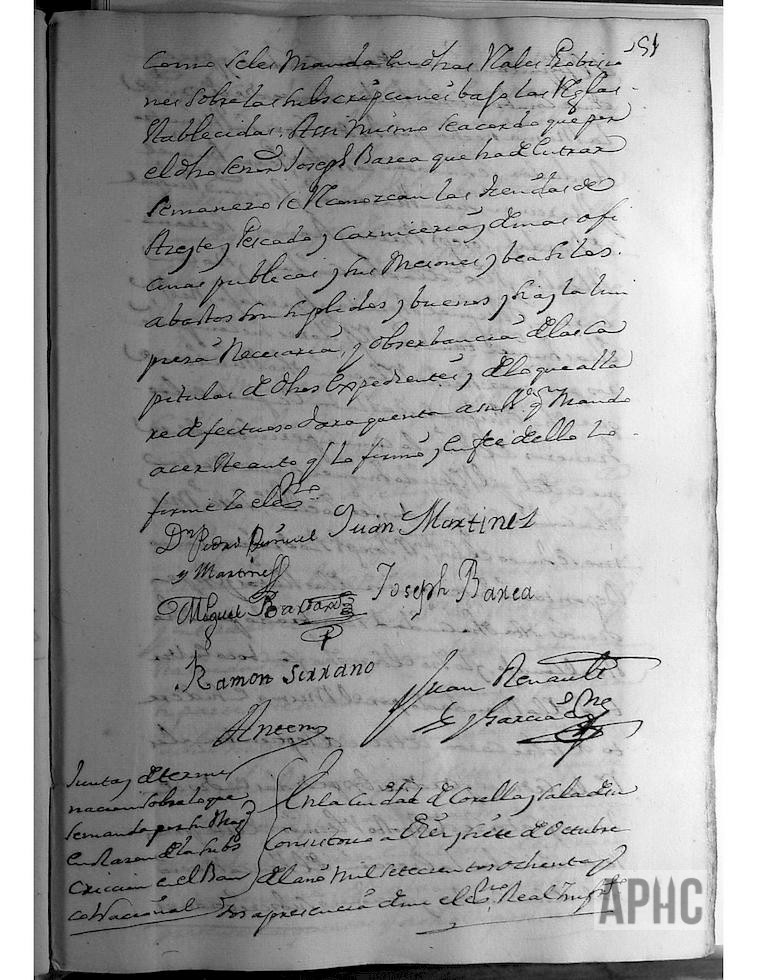 151
como se les manda en dhas Rales Probisio
nes sobre las subscripciones bajo las Reglas
establecidas. Assi mismo se acordo que por
el dho señor Joseph Barea que ha de entrar
semanero se Reconozcan las tiendas de
Azeyte y Pescado, y carniceria y demas ofi
cinas publicas y sus Mesones, y bea si los
abastos son y buenos, y si ay la lim
pieza Necesaria, y obserbancia de los ca
pitulos de dhos expedientes, y de lo que alla
re defectuoso dara quenta a su y Mando
acer este auto q lo firmo, y en fee de ello lo
firme Yo el
Dn Pedro Juan Martinez
y Martinez
Miguel Joseph Barea
Ramon Serrano
Juan Renault
Antemi y Garcia
Junta y determi
nacion sobre lo que
se manda por su Mag
en Razon de la subs
cricion en el Ban
co Nacional
En la Ciudad de Corella y sala de su
Consistorio a diez y siete de Octubre
del año mil setecientos ochenta y
dos a presencia de mi el Real
APHC